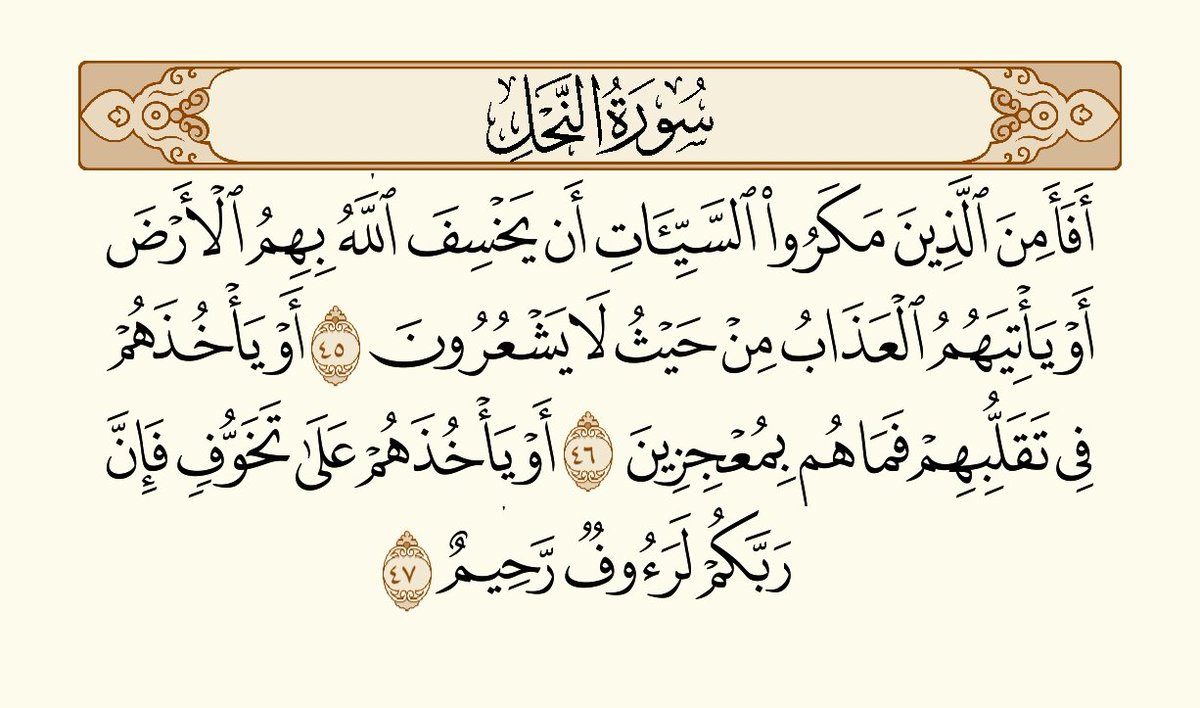 سُورَةُ النَّحْلِ
أَفَأَمِنَ ٱلَّذِينَ مَكَرُوا۟ ٱلسَّيِّـَٔاتِ أَن يَخْسِفَ ٱللَّهُ بِهِمُ ٱلْأَرْضَ
أَوْ يَأْتِيَهُمُ ٱلْعَذَابُ مِنْ حَيْثُ لَا يَشْعُرُونَ ٤٥ أَوْ يَأْخُذَهُمْ
فِى تَقَلُّبِهِمْ فَمَا هُم بِمُعْجِزِينَ ٤٦ أَوْ يَأْخُذَهُمْ عَلَىٰ تَخَوُّفٍ فَإِنَّ
رَبَّكُمْ لَرَءُوفٌ رَّحِيمٌ ٤٧